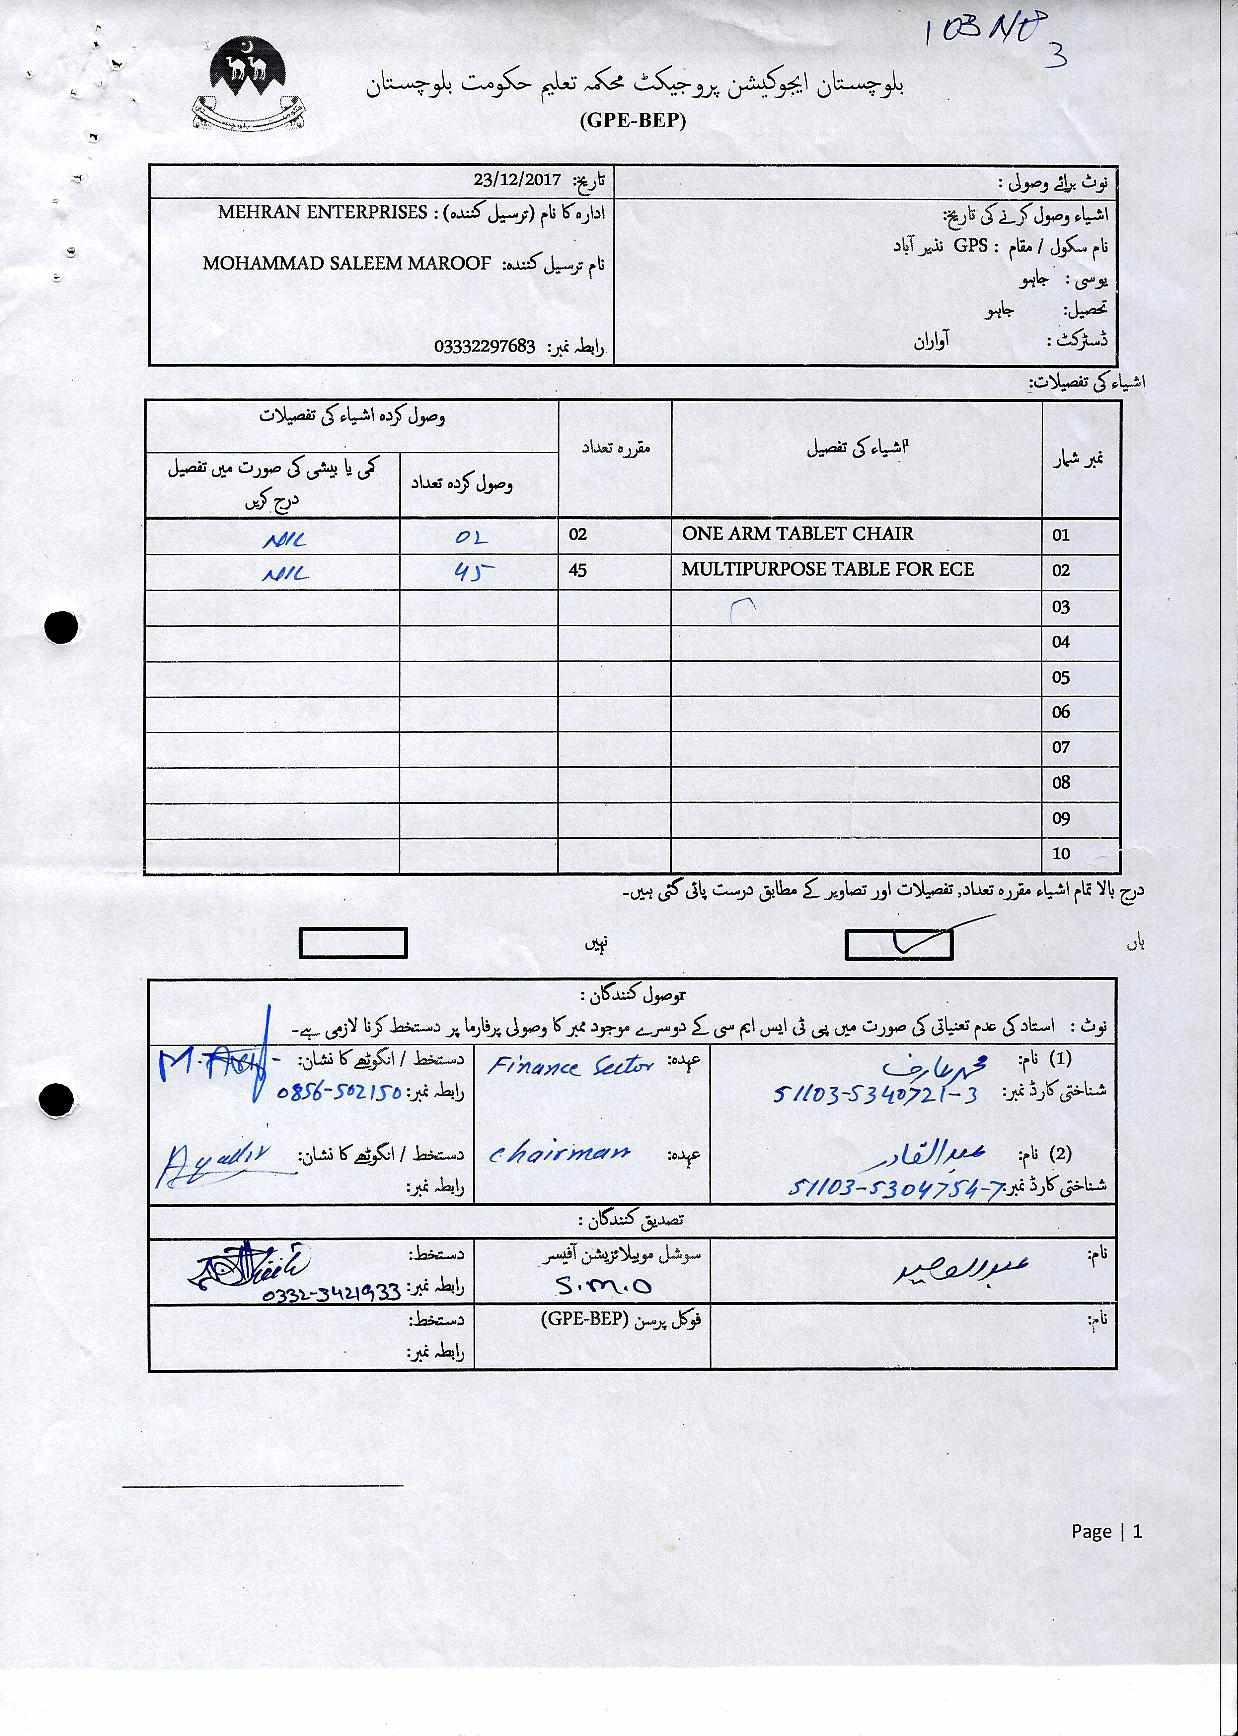 103 NO
3
بلوچستان ایجوکیشن پروجیکٹ محکمہ تعلیم حکومت بلوچستان
(GPE-BEP)
نوٹ برائے وصولی :
تاریخ: 23/12/2017
اشیاء وصول کرنے کی تاریخ:
نام سکول / مقام : GPS نذیر آباد
یوسی : جاہو
تحصیل: جاہو
ڈسٹرکٹ : آواران
ادارہ کا نام (ترسیل کنندہ) : MEHRAN ENTERPRISES
نام ترسیل کنندہ: MOHAMMAD SALEEM MAROOF
رابطہ نمبر: 03332297683
اشیاء کی تفصیلات:
نمبر شمار اشیاء کی تفصیل مقررہ تعداد وصول کردہ اشیاء کی تفصیلات
وصول کردہ تعداد کمی یا بیشی کی صورت میں تفصیل درج کریں
01 ONE ARM TABLET CHAIR 02 02 NIL
02 MULTIPURPOSE TABLE FOR ECE 45 45 NIL
03
04
05
06
07
08
09
10
درج بالا تمام اشیاء مقررہ تعداد, تفصیلات اور تصاویر کے مطابق درست پائی گئی ہیں۔
ہاں نہیں
وصول کنندگان :
نوٹ : استاد کی عدم تعنیاتی کی صورت میں پی ٹی ایس ایم سی کے دوسرے موجود ممبر کا وصولی پرفارما پر دستخط کرنا لازمی ہے۔
(1) نام: محمد عارف عہدہ: Finance Sector دستخط / انگوٹھے کا نشان: M.
شناختی کارڈ نمبر: 51103-5340721-3 رابطہ نمبر: 0856-502150
(2) نام: عبدالقادر عہدہ: Chairman دستخط / انگوٹھے کا نشان: AQadir
شناختی کارڈ نمبر: 51103-5304754-7 رابطہ نمبر:
تصدیق کنندگان :
نام: عبدالوحید سوشل موبیلائزیشن آفیسر دستخط:
S.M.O رابطہ نمبر: 0332-3421933
نام: فوکل پرسن (GPE-BEP) دستخط:
رابطہ نمبر:
Page | 1